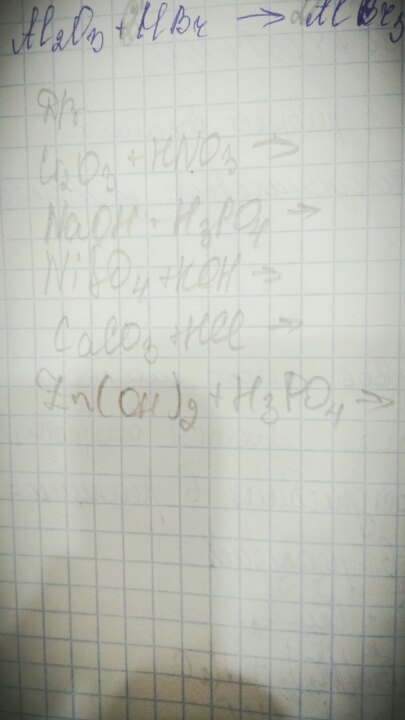 Al₂O₃ + HBr → AlBr₃
Др
Cr₂O₃ + HNO₃ →
NaOH + H₃PO₄ →
NiSO₄ + KOH →
CaCO₃ + HCl →
Zn(OH)₂ + H₃PO₄ →